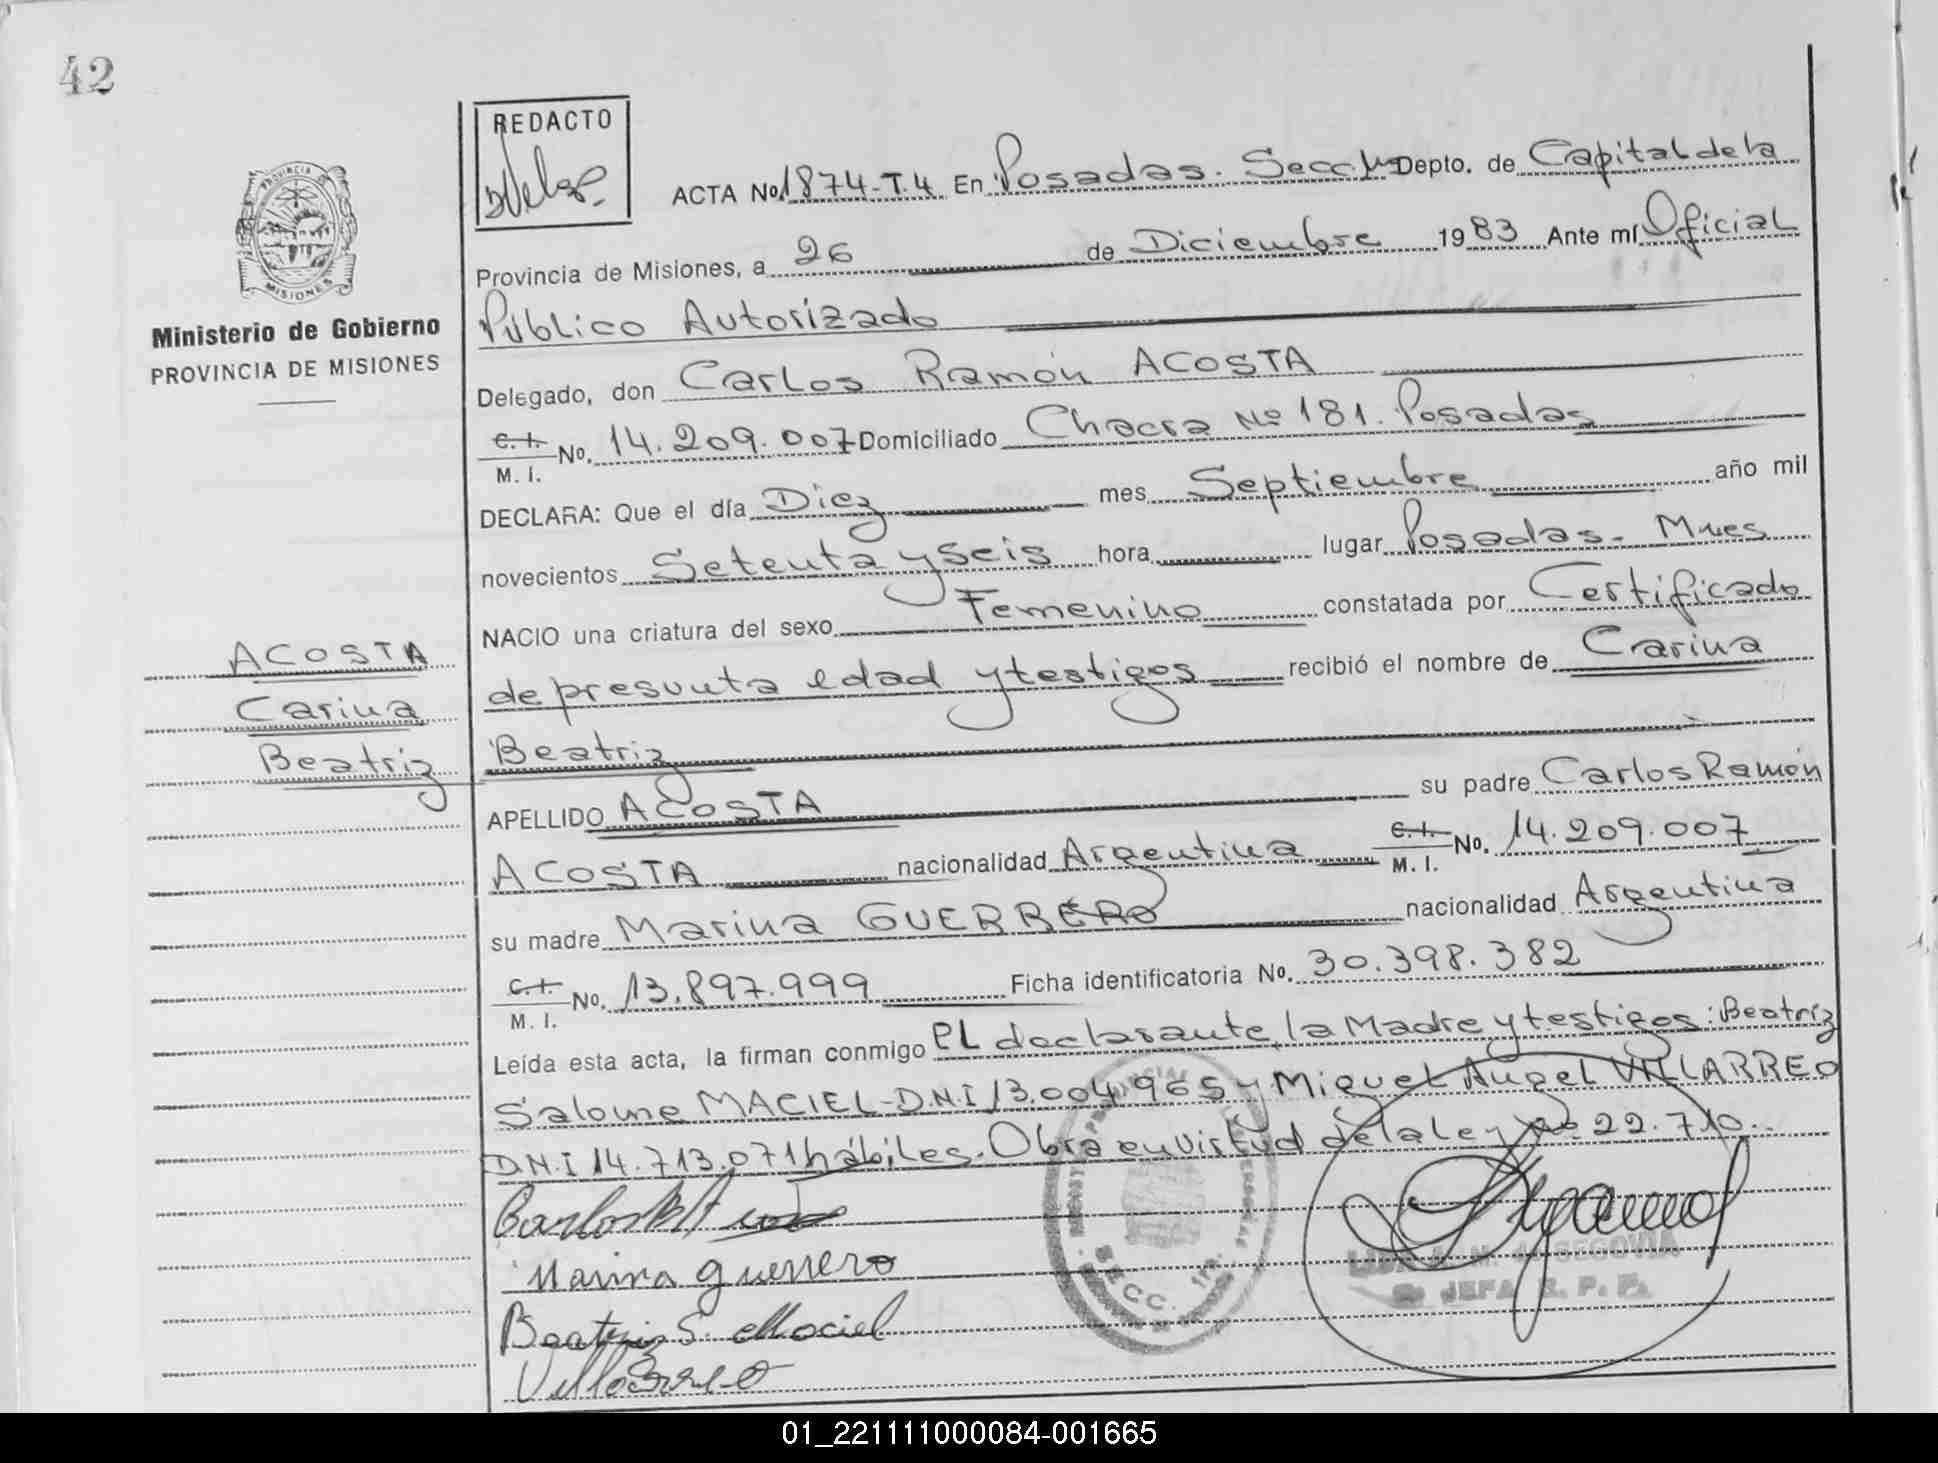 42
REDACTO
ACTA No. 1874-T.4 En Posadas. Secc. 1ra Depto. de Capital de la
Provincia de Misiones, a 26 de Diciembre 1983 Ante mí Oficial
Público Autorizado
PROVINCIA
MISIONES
Ministerio de Gobierno
PROVINCIA DE MISIONES
Delegado, don Carlos Ramón ACOSTA
C. I.
M. I. No. 14.209.007 Domiciliado Chacra Nº 181. Posadas
DECLARA: Que el día Diez mes Septiembre año mil
novecientos Setenta y Seis hora lugar Posadas. Mnes
NACIO una criatura del sexo Femenino constatada por Certificado
de presunta edad y testigos recibió el nombre de Carina
Beatriz
ACOSTA
Carina
Beatriz
APELLIDO ACOSTA su padre Carlos Ramón
ACOSTA nacionalidad Argentina C. I. M. I. No. 14.209.007
su madre Marina GUERRERO nacionalidad Argentina
C. I.
M. I. No. 13.897.999 Ficha identificatoria No. 30.398.382
Leída esta acta, la firman conmigo El declarante, la Madre y testigos: Beatriz
Salome MACIEL-D.N.I 13.004.965 y Miguel Angel VILLARREO
D.N.I 14.713.071 hábiles. Obra en virtud de la ley Nº 22.710.
Marina Guerrero
Beatriz S. Maciel
Villarreo
SECC. 1ra.
SEGOVIA
JEFA R. P. P.
01_221111000084-001665